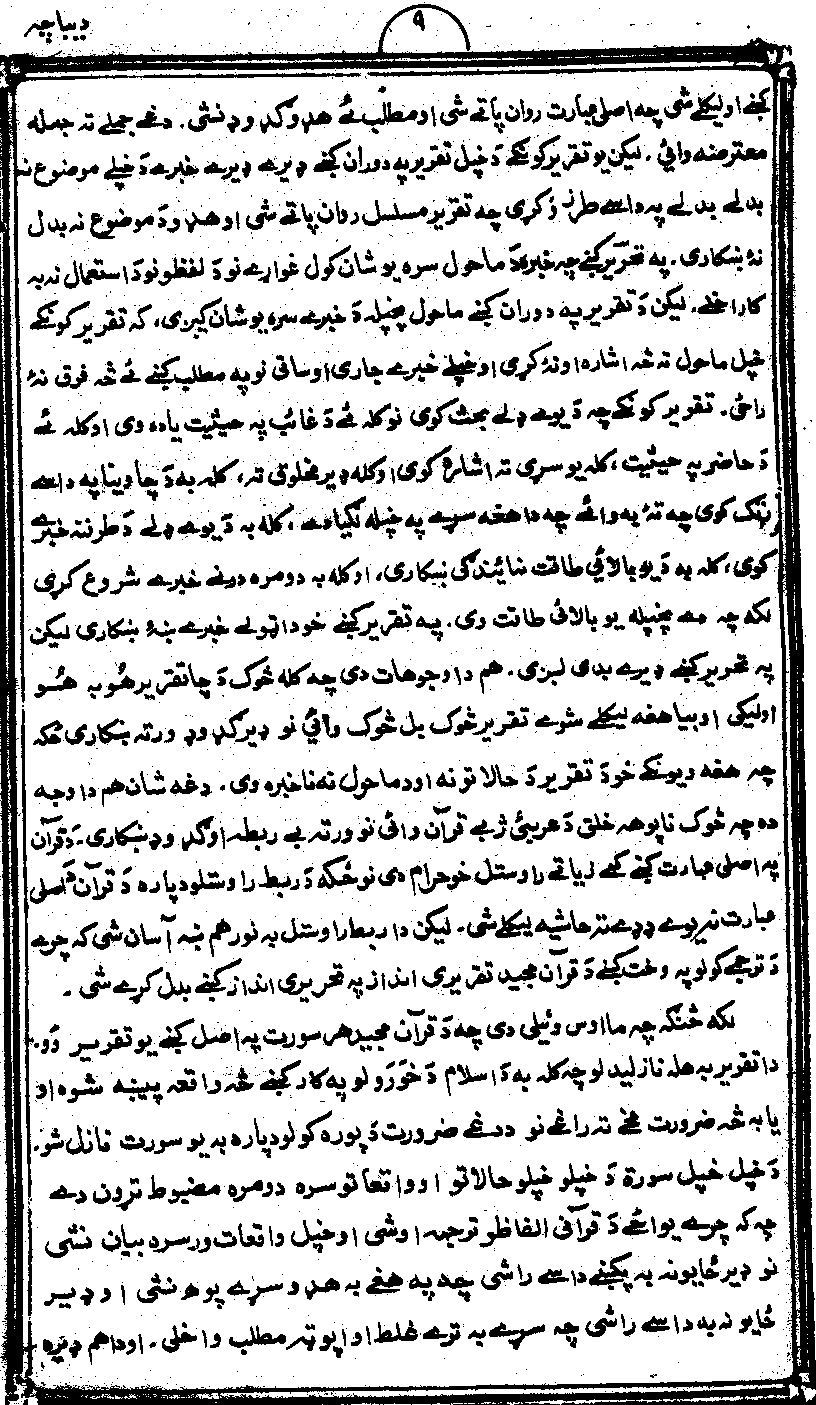 ديباچه
٩
کښے اوليکلے شي چه اصلي عبارت روان پاتے شي او مطلب ئے هډو ګډ وډ نشي. دغے جملے ته جمله
معترضه وائي. ليکن يو تقرير کونکے دَ خپل تقرير په دوران کښے ډيرے ډيرے خبرے دَ خپلے موضوع نه
بدلے بدلے په داسے طرز وُکړي چه تقرير مسلسل روان پاتے شي او هډو دَ موضوع نه بدل
نۀ ښکاري. په تحرير کښے چه خبره دَ ماحول سره يو شان کول غواړے نو دَ لفظونو دَ استعمال نه به
کار اخلے. ليکن دَ تقرير په دوران کښے ماحول پخپله دَ خبرے سره يو شان کيږي، که تقرير کونکے
خپل ماحول ته څه اشاره اونۀ کړي او خپلے خبرے جاري اوساتي نو په مطلب کښے ئے څه فرق نۀ
راځي. تقرير کونکے چه دَ يوے ډلے بحث کوي نو کله ئے دَ غائب په حيثيت يادوي او کله ئے
دَ حاضر په حيثيت، کله يو سړي ته اشاره کوي او کله ډير مخلوق ته، کله به دَ چا وينا په داسے
رنګ کوي چه تۀ به وائے چه دا هغه سړے په خپله لګيا دے، کله به دَ يوے ډلے دَ طرفنه خبرے
کوي، کله به دَ يو بالائي طاقت نمائيندګي ښکاري، او کله به دومره درنے خبرے شروع کړي
لکه چه دے پخپله يو بالائي طاقت وي. په تقرير کښے خو دا ټولے خبرے ښۀ ښکاري ليکن
په تحرير کښے ډيرے بدې لږي. هم دا وجوهات دي چه کله څوک دَ چا تقرير هُو به هُو
اوليکي او بيا هغه ليکلے شوے تقرير څوک بل څوک وائي نو ډير ګډ وډ ورته ښکاري ځکه
چه هغه ديونکے خو دَ تقرير دَ حالاتو نه او د ماحول نه ناخبره وي. دغه شان هم دا وجه
ده چه څوک ناپوهه خلق دَ عربئ ژبے قرآن وائي نو ورته بے ربطه او ګډ وډ ښکاري. دَ قرآن
په اصلي عبارت کښے کمے زياتے راوستل خو حرام دي نو ځکه دَ ربط راوستلو دپاره دَ قرآن دَ اصلي
عبارت نه يوے ډډے ته حاشيه ليکلے شي. ليکن دا ربط راوستل به نور هم ښه آسان شي که چرے
دَ ترجمے کولو په وخت کښے دَ قرآن مجيد تقريري انداز په تحريري انداز کښے بدل کړے شي.
لکه څنګه چه ما اوس وئيلي دي چه دَ قرآن مجيد هر سورت په اصل کښے يو تقرير وو.
دا تقرير به هله نازليدلو چه کله به دَ اسلام دَ خَوَرَولو په کار کښے څه واقعه پيښه شوه او
يا به څه ضرورت مخے ته راغے نو دغے ضرورت دَ پوره کولو دپاره به يو سورت نازل شو.
دَ خپل خپل سورة دَ خپلو خپلو حالاتو او واقعاتو سره دومره مضبوط تړون دے
چه که چرے يوائے دَ قرآني الفاظو ترجمه اوشي او خپل واقعات ورسره بيان نشي
نو ډير ځايونه به پکښے داسے راشي چه په هغے به هډو سړے پوهه نشي او ډير
ځايونه به داسے راشي چه سړے به ترے غلط او اپوټه مطلب واخلي. او دا هم ډيره